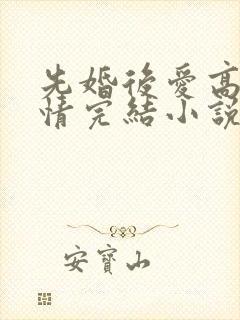 先婚後愛高
情完結小説
安寶山